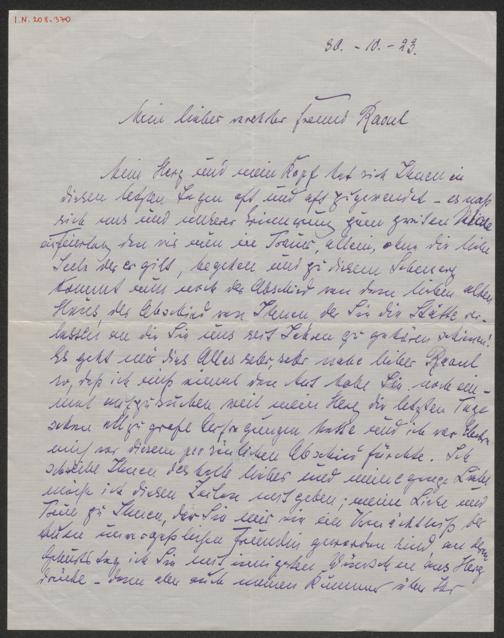 I.N. 208.370
30. - 10. - 23.
Mein lieber verehrter Freund Raoul
Mein Herz und mein Kopf hat sich Ihnen in
diesen letzten Tagen oft und oft zugewendet - es
sich uns und unserer Erinnerung zum zweiten Male
den wir nun in Trauer, allein, ohne die liebe
Seele der er gilt, begehen und zu diesem Schmerz
kommt nun noch der Abschied von dem lieben alten
Haus der Abschied von Ihnen der Sie die Stätte ver-
lassen an die Sie uns seit Jahren zu gehören schienen!
Es geht mir dies Alles sehr, sehr nahe lieber Raoul
so, daß ich nicht einmal den Mut habe Sie noch ein-
mal aufzusuchen weil mein Herz die letzten Tage
schon allzu große hatte und ich vor
mich vor diesem persönlichen Abschied fürchte. Ich
schreibe Ihnen deshalb lieber und meine ganze Liebe
möchte ich diesen Zeilen mitgeben; meine Liebe und
Treue zu Ihnen, der Sie mir wie ein Vermächtniß der
unvergeßlichen Freundin geworden sind, an deren
Geburtstag ich Sie mit innigsten Wünschen ans Herz
drücke - dann aber auch meinen Kummer über Ihr